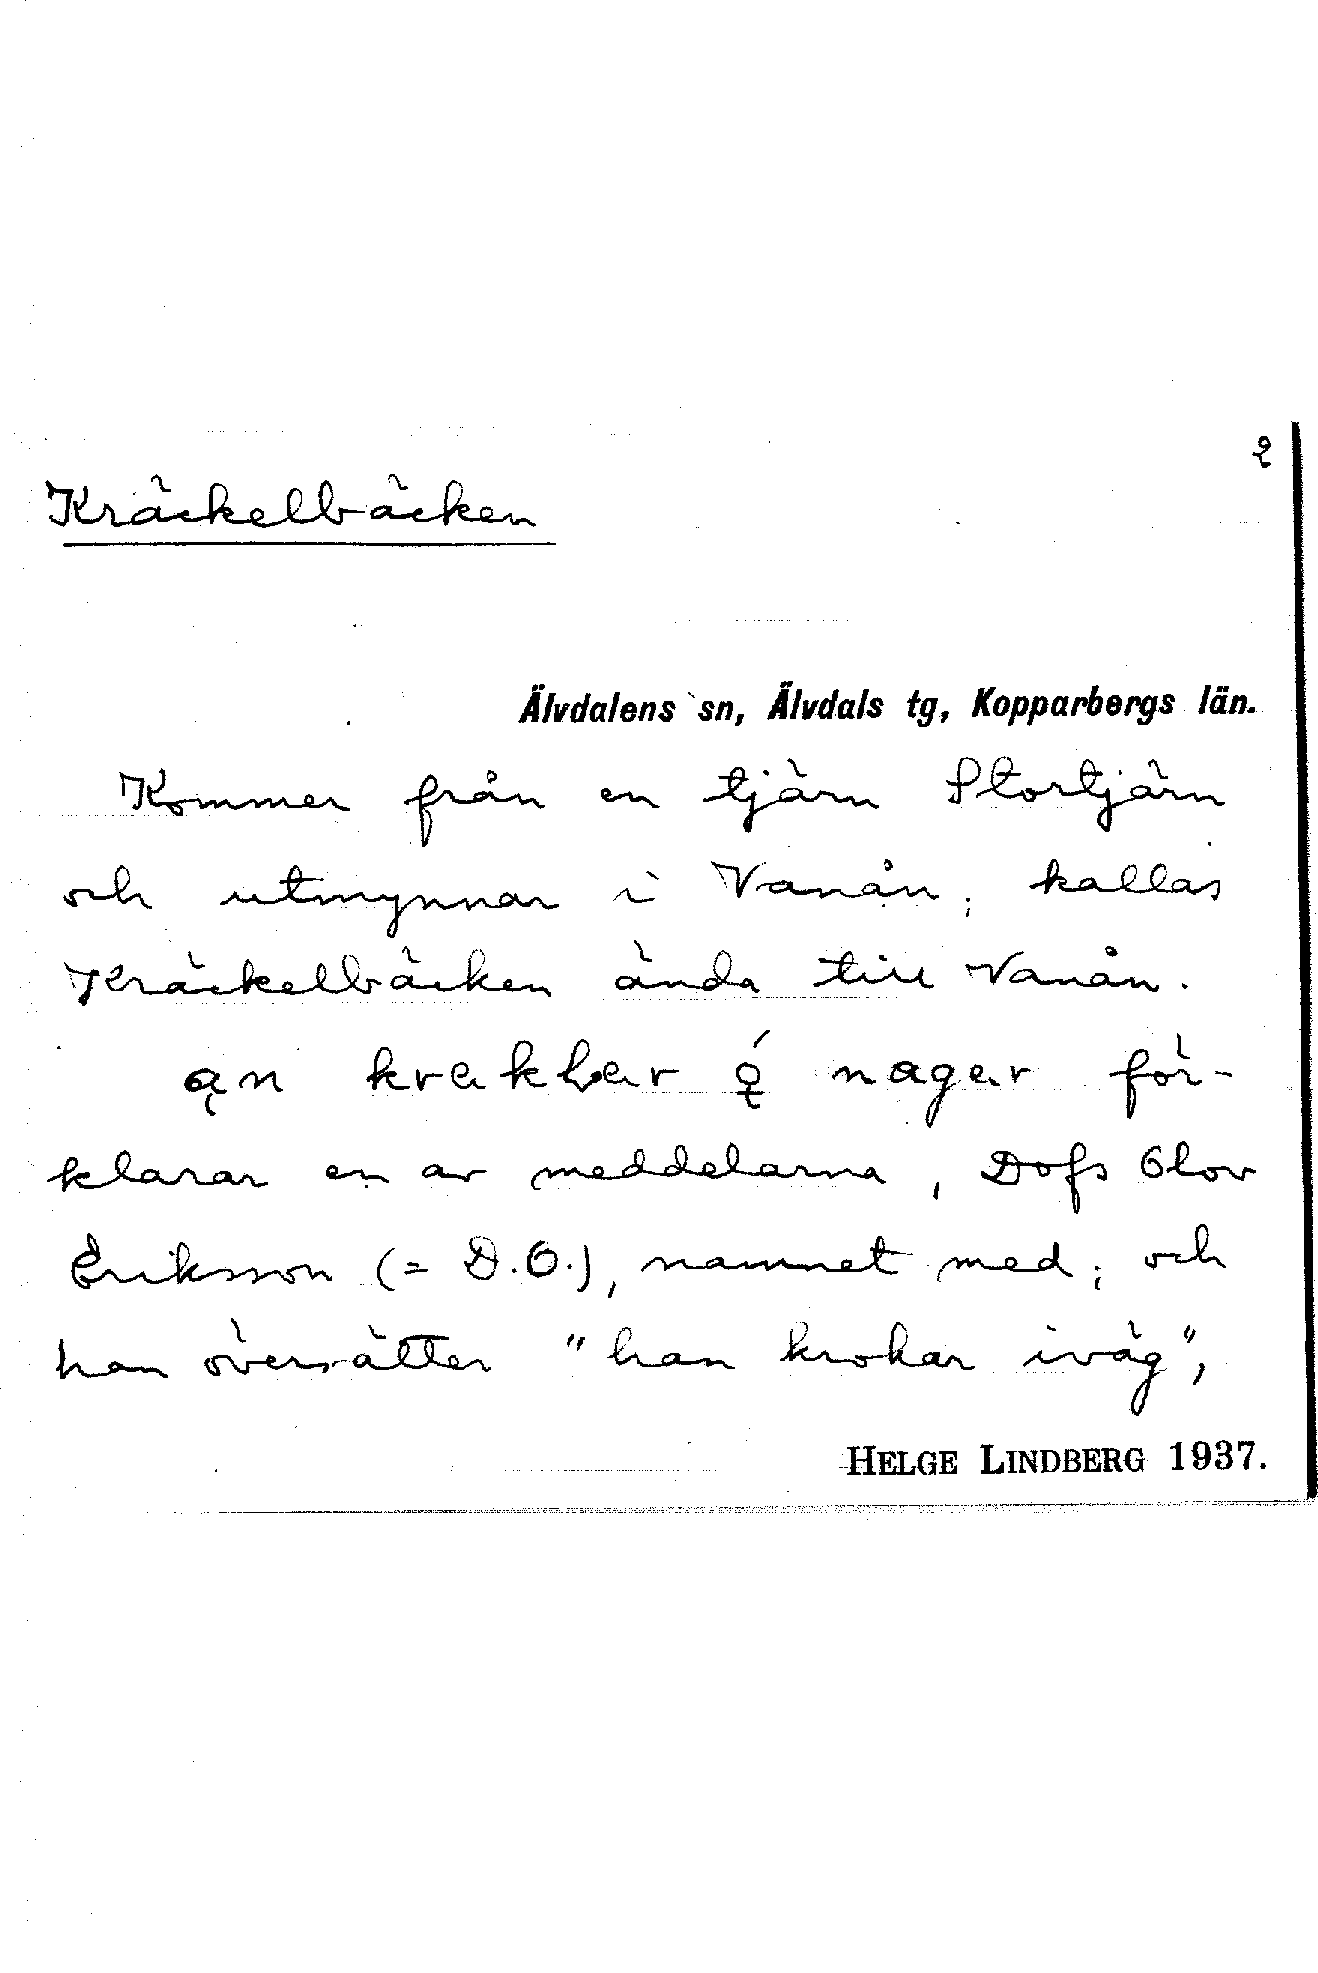 2
Kräckelbäcken
Älvdalens sn, Älvdals tg, Kopparbergs län.
Kommer från en tjärn Stortjärn
och utmynnar i Vanån; kallas
Kräckelbäcken ända till Vanån.
nager för-
klarar en av meddelarna, Dofs Olov
Eriksson (= D.O.), namnet med; och
han översätter "han krokar iväg",
HELGE LINDBERG 1937.